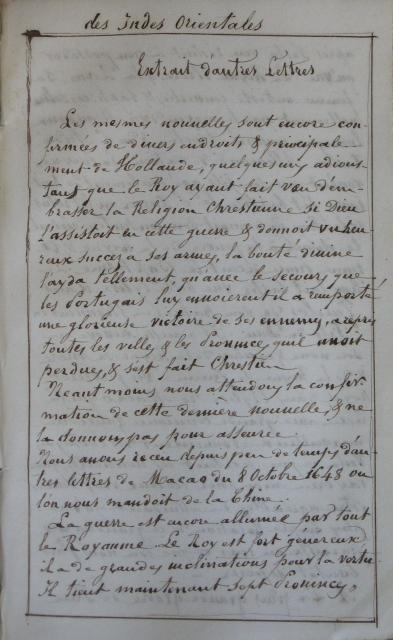 des Indes Orientales
Extrait d'autres Lettres
Les mesmes nouvelles sont encore con-
firmées de divers endroits & principale-
ment de Hollande, quelques uns adious-
tans que le Roy ayant fait vœu d'em-
brasser la Religion Chrestienne si Dieu
l'assistoit en cette guerre & donnoit un heu-
reux succez à ses armes, la bonté divine
l'ayda tellement, qu'avec le secours que
les Portugais luy envoierent il a remporté
une glorieuse victoire de ses ennemys, a repris
toutes les villes & les Provinces qu'il avoit
perdues, & s'est fait Chrestien
Neantmoins nous attendons la confir-
mation de cette derniere nouvelle, & ne
la donnons pas pour asseurée.
Nous avons receu depuis peu de temps d'au-
tres lettres de Macao du 8 Octobre 1648 où
l'on nous mandoit de la Chine.
La guerre est encore allumée par tout
le Royaume. Le Roy est fort généreux
il a de grandes inclinations pour la vertu.
Il tient maintenant sept Provinces,